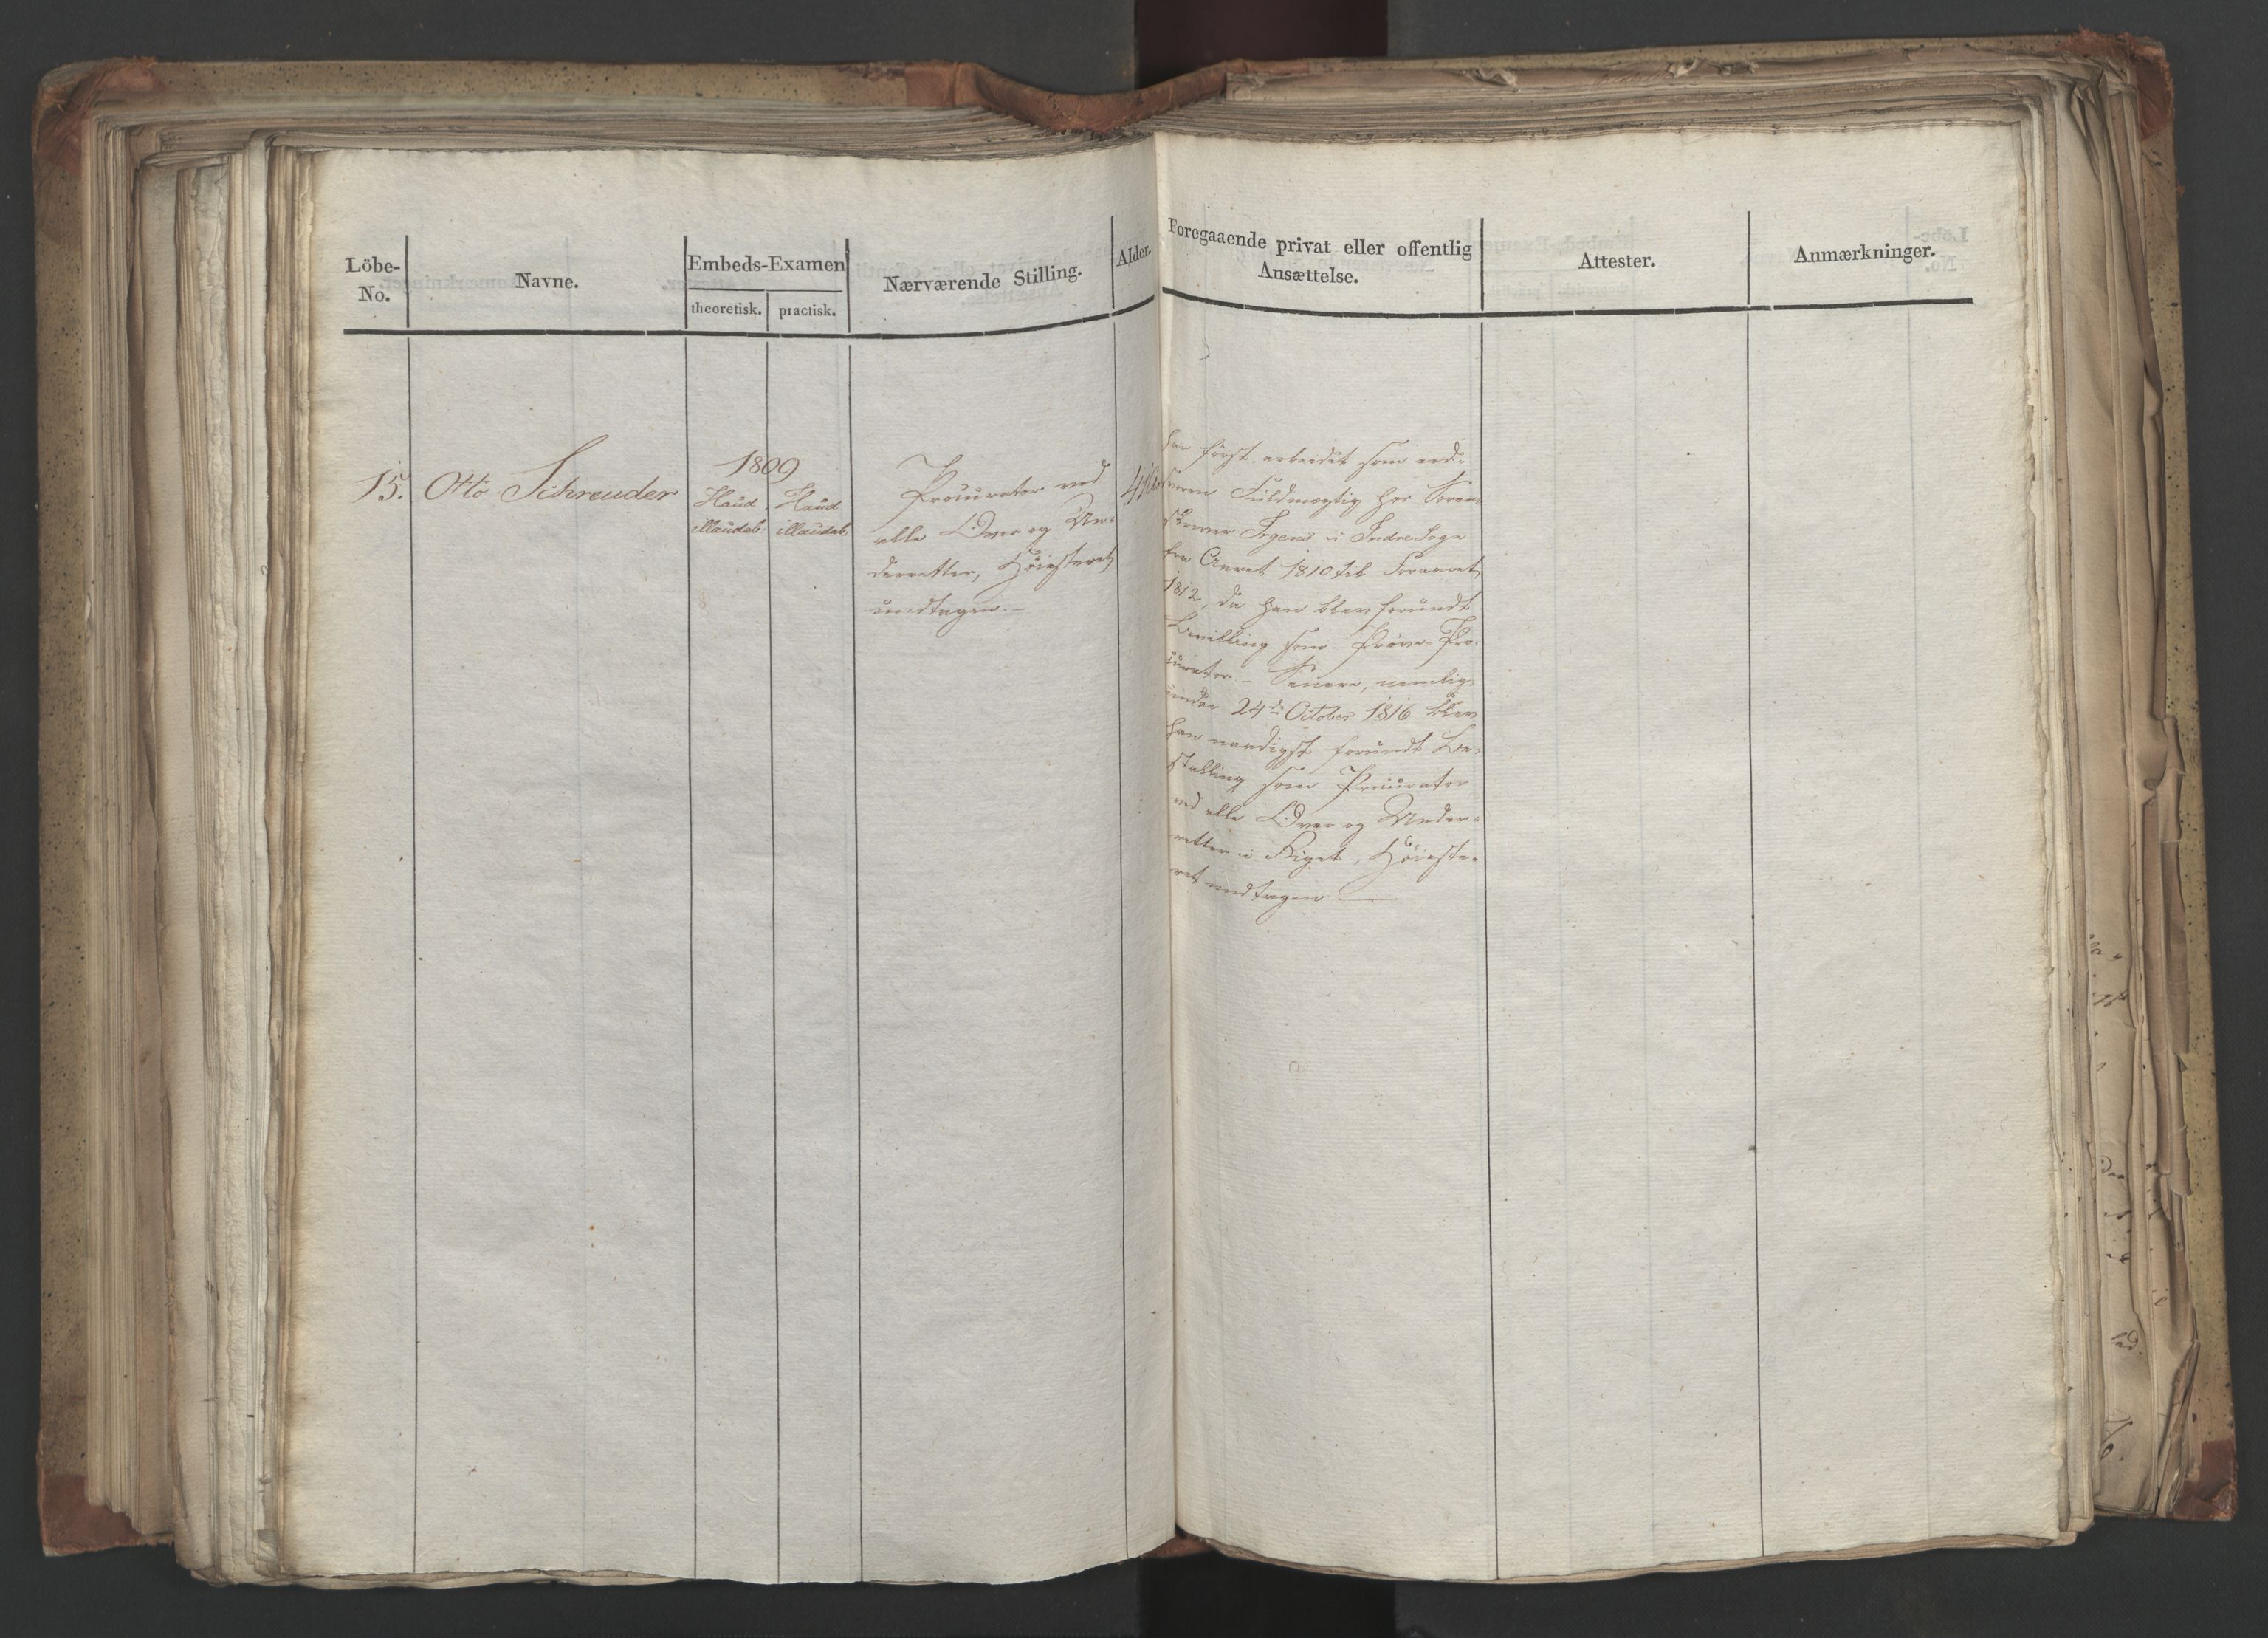 Löbe-
No.
Navne.
Embeds-Examen
theoretisk.
practisk.
Nærværende Stilling.
Alder.
Foregaaende privat eller offentlig
Ansættelse.
Attester.
Anmærkninger.
15.
Otto Schreuder
1809
Haud
illaudab:
Haud
illaudab:
Procurator ved
alle Over og Un-
derretter, Höiesteret
undtagen.-
Har först arbeidet som ed-
svoren Fuldmægtig hos Soren-
skriver Irgens i Indre Sogn
fra Aaret 1810 til Foraaret
1812, da han blev forundt
Bevilling som Prøve-Pro-
curator - Senere, nemlig
under 24de October 1816 blev
han naadigst forundt Be-
stalling som Procurator
ved alle Over og Under-
retter i Riget, Höieste-
ret undtagen -